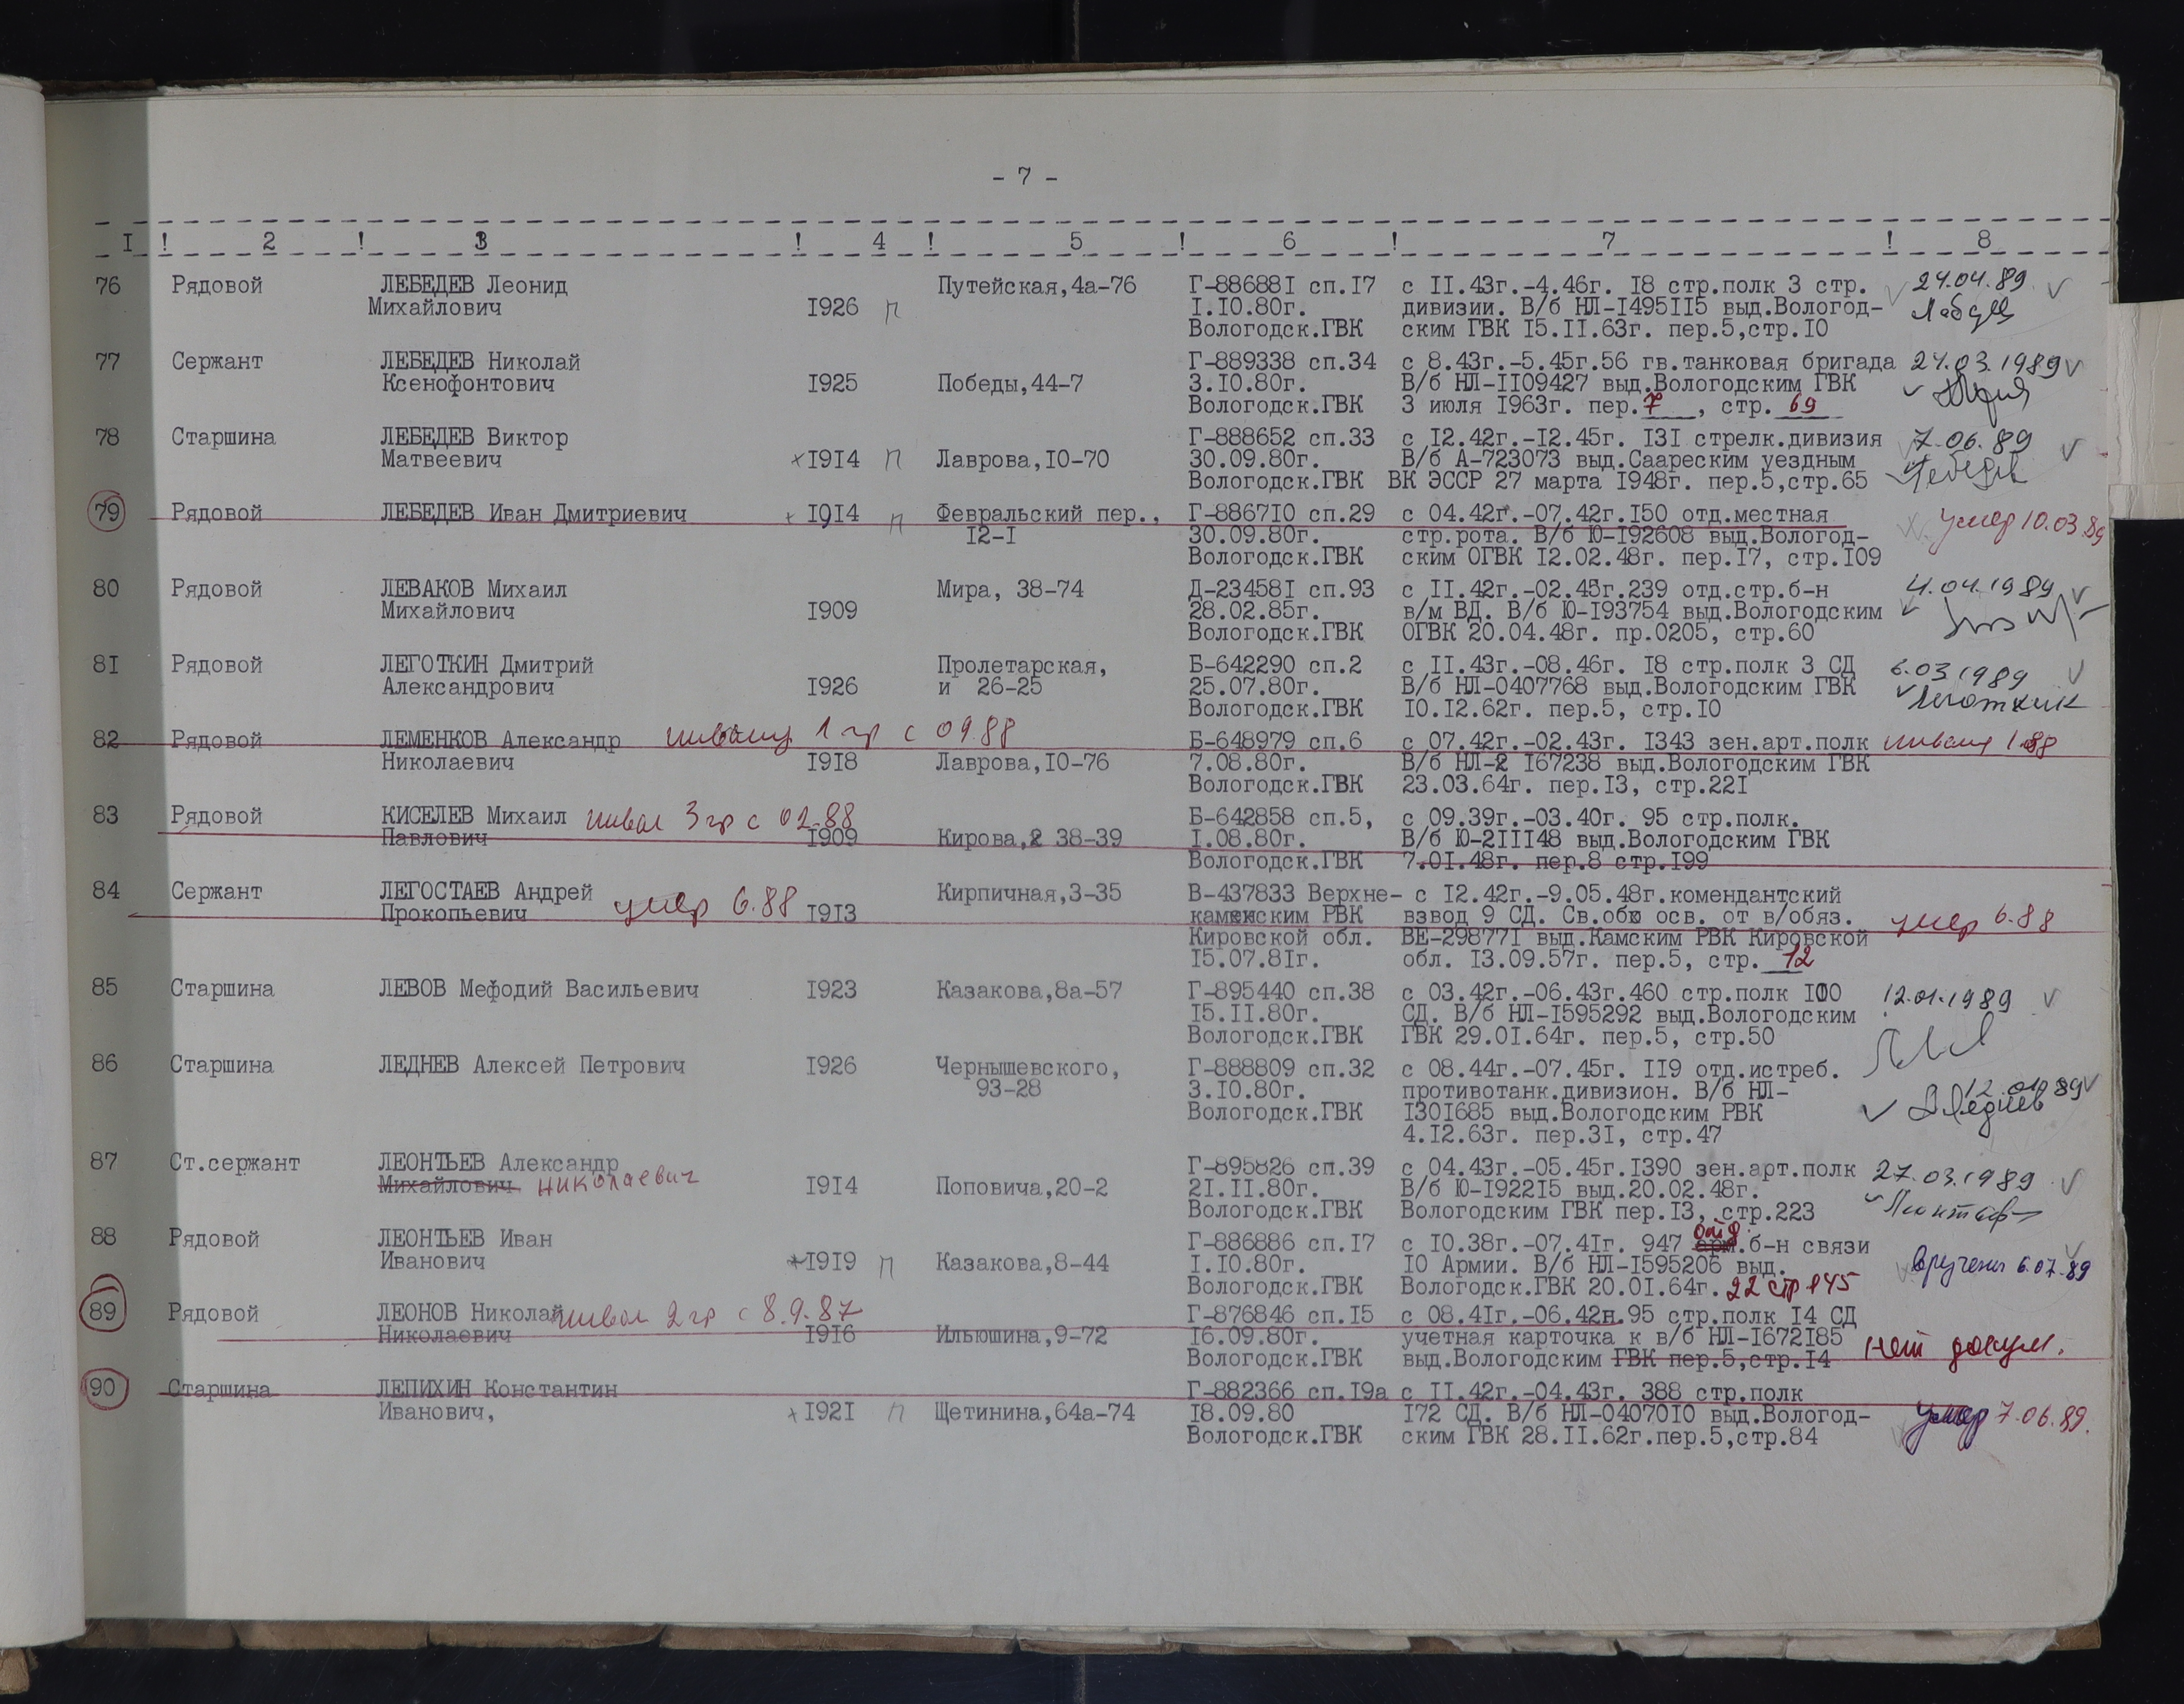 - 7 -
I ! 2 ! 3 ! 4 ! 5 ! 6 ! 7 ! 8
76 Рядовой ЛЕБЕДЕВ Леонид Путейская,4а-76 Г-886881 сп.17 с II.43г.-4.46г. I8 стр.полк 3 стр. 24.04.89
Михайлович I926 п I.I0.80г. дивизии. В/б НЛ-I495II5 выд.Вологод-
Вологодск.ГВК ским ГВК I5.II.63г. пер.5,стр.I0
77 Сержант ЛЕБЕДЕВ Николай Г-889338 сп.34 с 8.43г.-5.45г.56 гв.танковая бригада 24.03.1989
Ксенофонтович I925 Победы,44-7 3.I0.80г. В/б НЛ-II09427 выд.Вологодским ГВК
Вологодск.ГВК 3 июля I963г. пер.7, стр. 69
78 Старшина ЛЕБЕДЕВ Виктор Г-888652 сп.33 с I2.42г.-I2.45г. I3I стрелк.дивизия 7.06.89
Матвеевич I9I4 п Лаврова,I0-70 30.09.80г. В/б А-723073 выд.Саареским уездным
Вологодск.ГВК ВК ЭССР 27 марта I948г. пер.5,стр.65 Лебедев
79 Рядовой ЛЕБЕДЕВ Иван Дмитриевич I9I4 п Февральский пер., Г-8867I0 сп.29 с 04.42г.-07.42г.I50 отд.местная умер 10.03.89
I2-I 30.09.80г. стр.рота. В/б Ю-I92608 выд.Вологод-
Вологодск.ГВК ским ОГВК I2.02.48г. пер.I7, стр.I09
80 Рядовой ЛЕВАКОВ Михаил Мира, 38-74 Д-23458I сп.93 с II.42г.-02.45г.239 отд.стр.б-н 4.04.1989
Михайлович I909 28.02.85г. в/м ВД. В/б Ю-I93754 выд.Вологодским
Вологодск.ГВК ОГВК 20.04.48г. пр.0205, стр.60
8I Рядовой ЛЕГОТКИН Дмитрий Пролетарская, Б-642290 сп.2 с II.43г.-08.46г. I8 стр.полк 3 СД 6.03.1989
Александрович I926 и 26-25 25.07.80г. В/б НЛ-0407768 выд.Вологодским ГВК Леготкин
Вологодск.ГВК I0.I2.62г. пер.5, стр.I0
82 Рядовой ЛЕМЕНКОВ Александр инвалид 1 гр с 09.88 Б-648979 сп.6 с 07.42г.-02.43г. I343 зен.арт.полк
Николаевич I9I8 Лаврова,I0-76 7.08.80г. В/б НЛ-2 I67238 выд.Вологодским ГВК
Вологодск.ГВК 23.03.64г. пер.I3, стр.22I
83 Рядовой КИСЕЛЕВ Михаил инвал 3 гр с 02.88 Б-642858 сп.5, с 09.39г.-03.40г. 95 стр.полк.
Павлович I909 Кирова, 38-39 I.08.80г. В/б Ю-2III48 выд.Вологодским ГВК
Вологодск.ГВК 7.0I.48г. пер.8 стр.I99
84 Сержант ЛЕГОСТАЕВ Андрей Кирпичная,3-35 В-437833 Верхне- с I2.42г.-9.05.48г.комендантский
Прокопьевич умер 6.88 I9I3 каменским РВК взвод 9 СД. Св.обю осв. от в/обяз. умер 6.88
Кировской обл. ВЕ-29877I выд.Камским РВК Кировской
I5.07.8Iг. обл. I3.09.57г. пер.5, стр. 12
85 Старшина ЛЕВОВ Мефодий Васильевич I923 Казакова,8а-57 Г-895440 сп.38 с 03.42г.-06.43г.460 стр.полк I00 12.01.1989
I5.II.80г. СД. В/б НЛ-I595292 выд.Вологодским
Вологодск.ГВК ГВК 29.0I.64г. пер.5, стр.50
86 Старшина ЛЕДНЕВ Алексей Петрович I926 Чернышевского, Г-888809 сп.32 с 08.44г.-07.45г. II9 отд.истреб.
93-28 3.I0.80г. противотанк.дивизион. В/б НЛ- 12.01.89
Вологодск.ГВК I30I685 выд.Вологодским РВК Леднев
4.I2.63г. пер.3I, стр.47
87 Ст.сержант ЛЕОНТЬЕВ Александр Г-895826 сп.39 с 04.43г.-05.45г.I390 зен.арт.полк 27.03.1989
Михайлович николаевич I9I4 Поповича,20-2 2I.II.80г. В/б Ю-I922I5 выд.20.02.48г.
Вологодск.ГВК Вологодским ГВК пер.I3, стр.223
88 Рядовой ЛЕОНТЬЕВ Иван Г-886886 сп.I7 с I0.38г.-07.4Iг. 947 .б-н связи
Иванович I9I9 п Казакова,8-44 I.I0.80г. I0 Армии. В/б НЛ-I595206 выд. вручена 6.07.89
Вологодск.ГВК Вологодск.ГВК 20.0I.64г. 22 стр 145
89 Рядовой ЛЕОНОВ Николай инвал 2 гр с 8.9.87 Г-876846 сп.I5 с 08.4Iг.-06.42н.95 стр.полк I4 СД
Николаевич I9I6 Ильюшина,9-72 I6.09.80г. учетная карточка к в/б НЛ-I672I85
Вологодск.ГВК выд.Вологодским ГВК пер.5,стр.I4 нет докум.
90 Старшина ЛЕПИХИН Константин Г-882366 сп.I9а с II.42г.-04.43г. 388 стр.полк
Иванович, I92I п Щетинина,64а-74 I8.09.80 I72 СД. В/б НЛ-04070I0 выд.Вологод- умер 7.06.89.
Вологодск.ГВК ским ГВК 28.II.62г.пер.5,стр.84